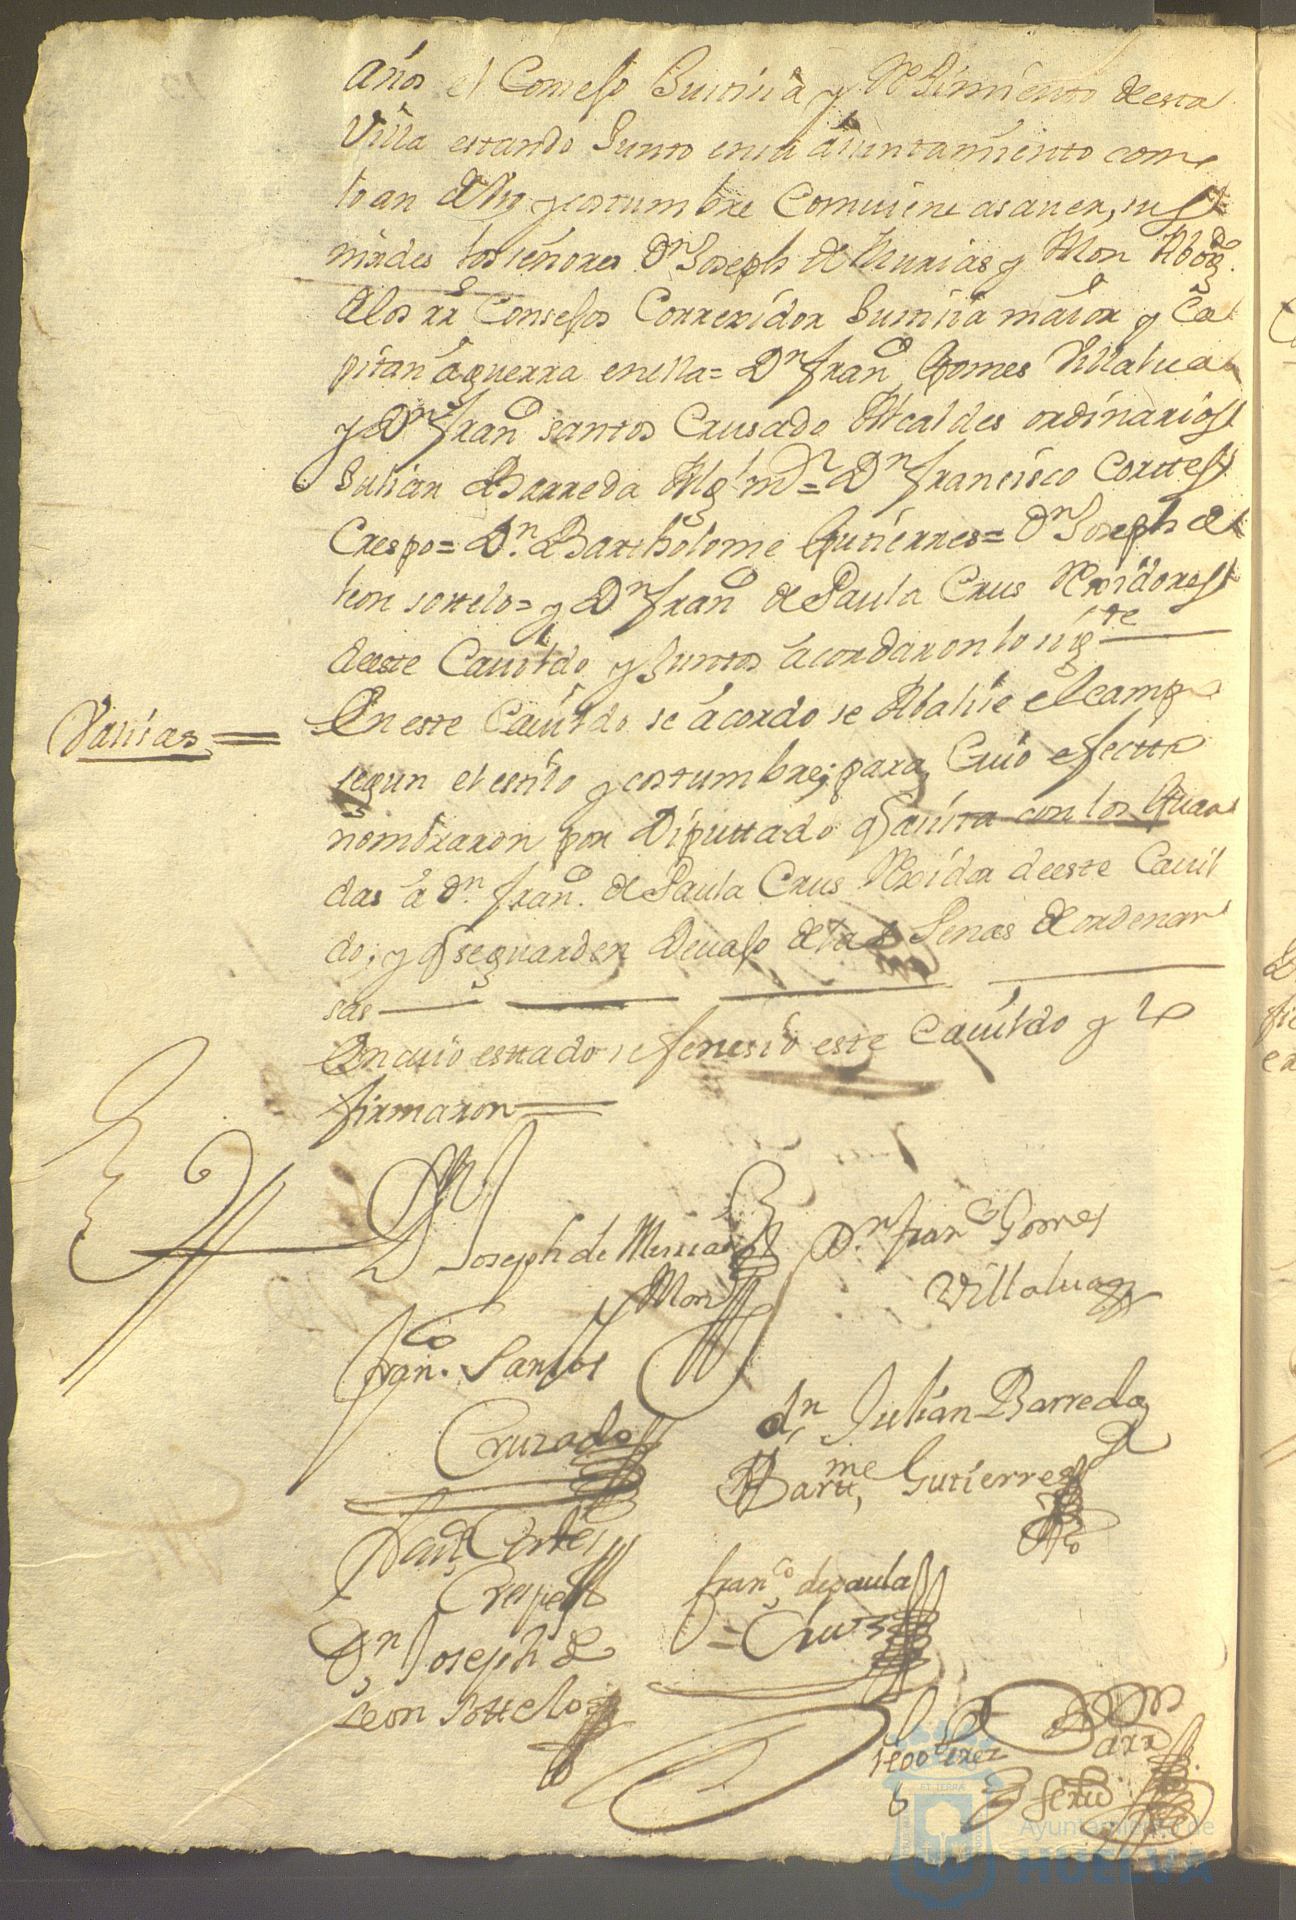 años el Consejo Justicia y Reximiento de esta
Villa estando Junto en su aiuntamiento como
lo an de Uso y costumbre Combiene asauer, sus
mrdes los señores Dn Joseph de Murias y Mon Abogdo
de los rrs Consejos Correxidor Justicia maior y Ca
pitan a guerra en ella= Dn Franco Gomes Villalua
y Dn Franco santos Crusado Alcaldes ordinarios
Julian Barreda Alg mor= Dn Francisco Corttes
Crespo= Dn. Bartholome Gutierres= Dn Joseph de
leon sottelo= y Dn Franco de Paula Crus Rexidores
de este Cauildo y Juntos acordaron lo sigte
Varias=
En este Cauildo se acordo se Abalie el campo
segun el estilo y costumbre; para Cuio efectto
nombraron por Diputtado q Saiita con los Guar
das a Dn. Franco. de Paula Crus Rexidor de este Cauil
do; y q se guarden Deuajo de las Penas de ordenan
sas
En cuio esttado se fenesio este Cauildo y lo
firmaron
Dn Joseph de Murias
y Mon
Dn Franco Gomes
Villalua
Franco. Santos
Cruzado
dn Julian Barreda
Barttme Gutierres
Franco Cortes
Crespo
franco de paula
= Cruz
Dn Joseph de
Leon Sottelo
Perez
Ayuntamiento de
HUELVA